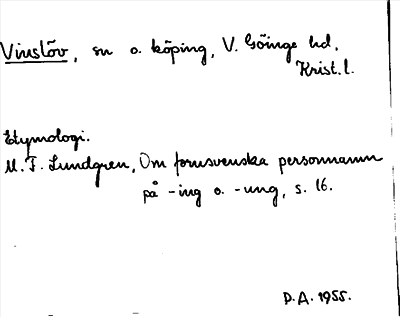 Vinslöv, sn o. köping, V. Göinge hd,
Krist. l.
Etymologi.
M. F. Lundgren, Om fornsvenska personnamn
på -ing o. -ung, s. 16.
D.A. 1955.